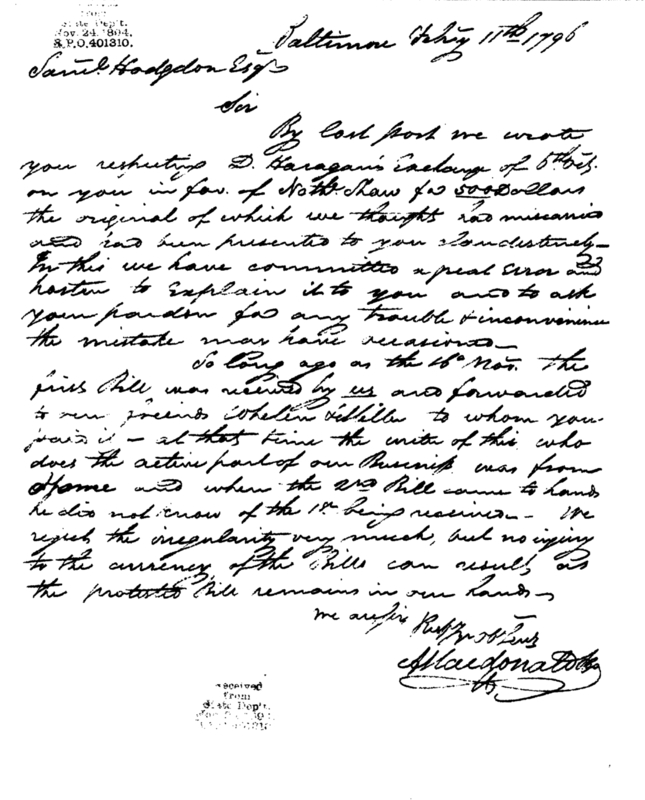 from
State Dep't.
Nov. 24, 1894.
S.P.O. 401310.
Baltimore Feb'y 11th 1796
Sam'l Hodgdon Esq'r
Sir
By last post we wrote
you respecting D. Exchange of 5th Oct.
on you in fav. of Nath. Shaw for 500 Dollars
the original of which we thought had miscarried
and had been presented to you clandestinely -
In this we have committed a great Error and
hasten to Explain it to you and to ask
your pardon for any trouble & inconvenience
the mistake may have occasioned -
So long ago as the 16th Nov. the
first Bill was received by us and forwarded
to our friends Whelen & Miller to whom you
paid it - at that time the write of this who
does the active part of our Business was from
Home and when the 2nd Bill came to hand
he did not know of the 1st being received - We
regret the irregularity very much, but no injury
to the currency of the Bills can result as
the protested Bill remains in our hands -
we are Sir
A Macdonald & Co
received
from
State Dep't.